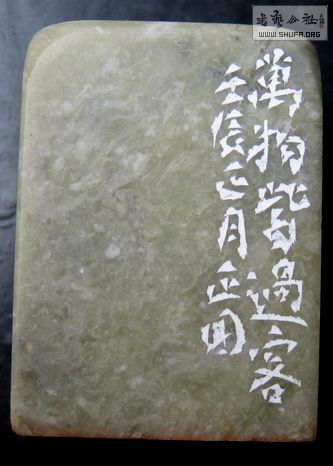 萬物皆過客
壬辰正月正国
書藝公社
WWW.SHUFA.ORG